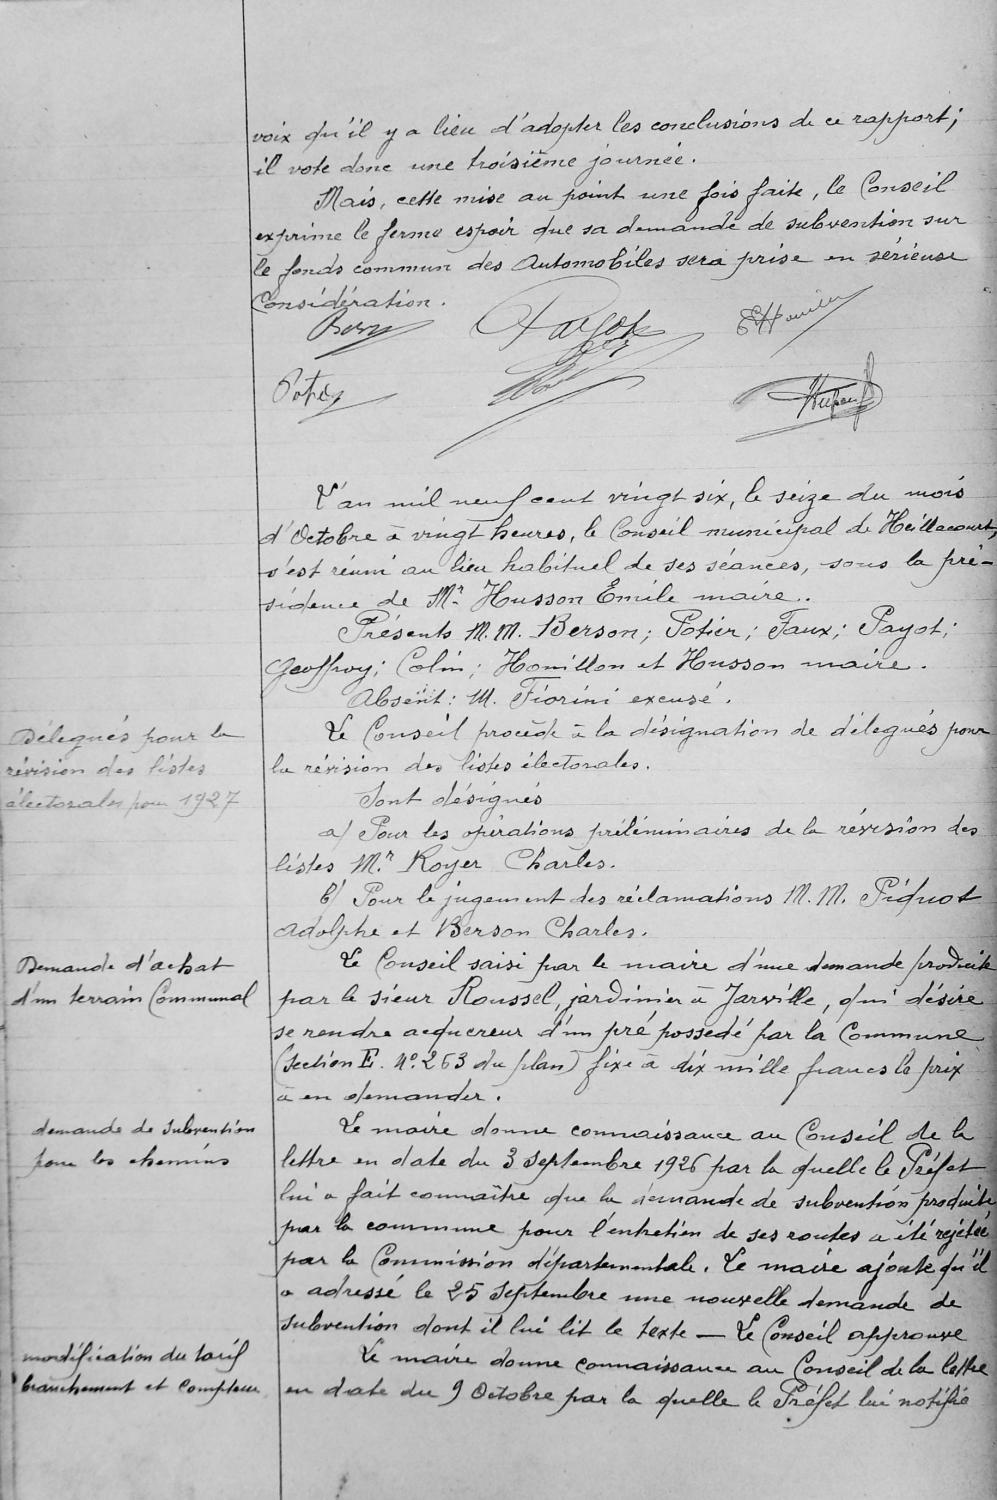 voix qu'il y a lieu d'adopter les conclusions de ce rapport;
il vote donc une troisième journée.
Mais, cette mise au point une fois faite, le Conseil
exprime le ferme espoir que sa demande de subvention sur
le fonds commun des Automobiles sera prise en sérieuse
Considération.
Payot
Potier
L'an mil neuf cent vingt six, le seize du mois
d'Octobre à vingt heures, le Conseil municipal de Heillecourt,
s'est réuni au lieu habituel de ses séances, sous la pré-
sidence de Mr Husson Emile maire..
Présents M.M. Berson; Potier; Faux; Payot;
Geoffroy; Colin; Houillon et Husson maire.
Absent: M. Fiorini excusé.
Délegués pour la
révision des listes
électorales pour 1927
Le Conseil procède à la désignation de délegués pour
la révision des listes électorales.
Sont désignés
a) Pour les opérations préliminaires de la révision des
listes Mr Royer Charles.
b) Pour le jugement des réclamations M.M. Piquot
Adolphe et Berson Charles.
Demande d'achat
d'un terrain Communal
Le Conseil saisi par le maire d'une demande produite
par le sieur Roussel, jardinier à Jarville, qui désire
se rendre acquereur d'un pré possedé par la Commune
(Section E. No. 263 du plan) fixe à dix mille francs le prix
à en demander.
demande de subvention
pour les chemins
Le maire donne connaissance au Conseil de la
lettre en date du 3 Septembre 1926 par la quelle le Préfet
lui a fait connaître que la demande de subvention produite
par la commune pour l'entretien de ses routes a été rejetée
par la Commission départementale. Le maire ajoute qu'il
a adressé le 25 Septembre une nouvelle demande de
subvention dont il lui lit le texte — Le Conseil approuve
modification du tarif
branchement et compteur
Le maire donne connaissance au Conseil de la lettre
en date du 9 Octobre par la quelle le Préfet lui notifie